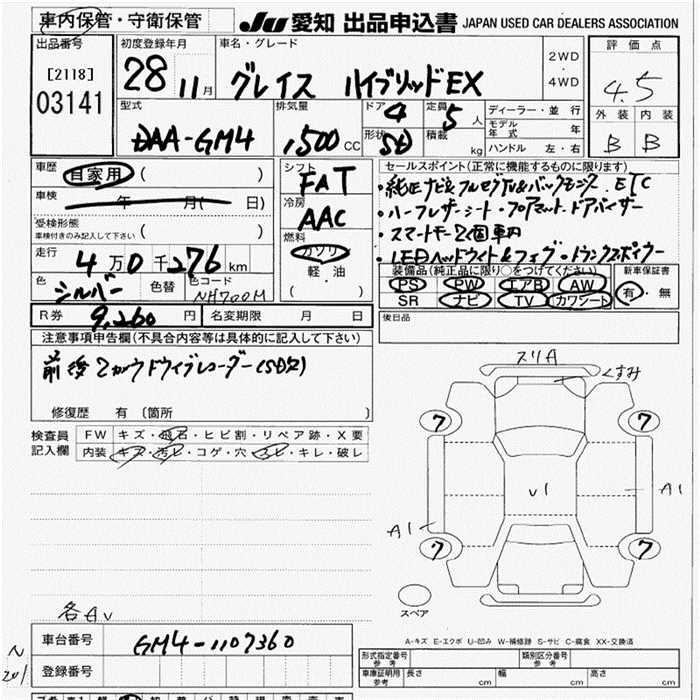 車内保管・守衛保管 JU 愛知 出品申込書 JAPAN USED CAR DEALERS ASSOCIATION
出品番号
[2118]
03141
初度登録年月
28 11月
車名・グレード
グレイス ハイブリッドEX
2WD
・
4WD
評価点
4.5
外装 内装
B B
型式
DAA-GM4
排気量
1,500cc
ドア 4
形状 SD
定員 5人
積載 kg
ディーラー・並行
モデル年式 年
ハンドル 左・右
車歴 自家用 ( )
車検 年 月( 日)
受検形態
車検付きのみ記入して下さい ( )
走行 4万0千276km
色 シルバー 色替 色コード NH700M
シフト
FAT
冷房
AAC
燃料
ガソリン
軽・油
( )
セールスポイント(正常に機能するものに限ります)
・純正ナビ&フルセグTV&バックモニター ETC
・ハーフレザーシート・フロアマット・ドアバイザー
・スマートキー2個車内
・LEDヘッドライト&フォグ・トランクスポイラー
装備品(純正品に限り○をつけてください)
PS PW エアB AW
SR ナビ TV カワシート
新車保証書
有・無
R券 9,260円 名変期限 月 日
後日品
注意事項申告欄(不具合内容等は具体的に記入して下さい)
前後2カメラドライブレコーダー(SD欠)
修復歴 有 〔箇所 〕
検査員記入欄
FW キズ・飛石・ヒビ割・リペア跡・X要
内装 キズ・汚レ・コゲ・穴・スレ・キレ・破レ
スリA
くすみ
7 7
U1
A1
A1
7 7
スペア
各AU
A-キズ E-エクボ U-凹み W-補修跡 S-サビ C-腐食 XX-交換済
車台番号 GM4-1107360
登録番号
型式指定番号 参考 類別区分番号 参考
車庫証明用 参考 長さ cm 幅 cm 高さ cm